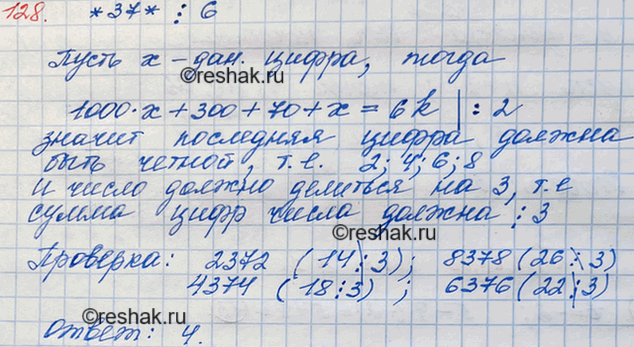 128. *37* ⋮ 6
Пусть x – дан. цифра, тогда
©reshak.ru
1000·x + 300 + 70 + x = 6k | : 2
значит последняя цифра должна
быть четной, т.е. 2; 4; 6; 8
и число должно делиться на 3, т.е
сумма цифр числа должна ⋮ 3
©reshak.ru
Проверка: 2372 (14 ⋮̸ 3); 8378 (26 ⋮̸ 3)
4374 (18 ⋮ 3) ; 6376 (22 ⋮̸ 3)
©reshak.ru
©reshak.ru
Ответ: 4.